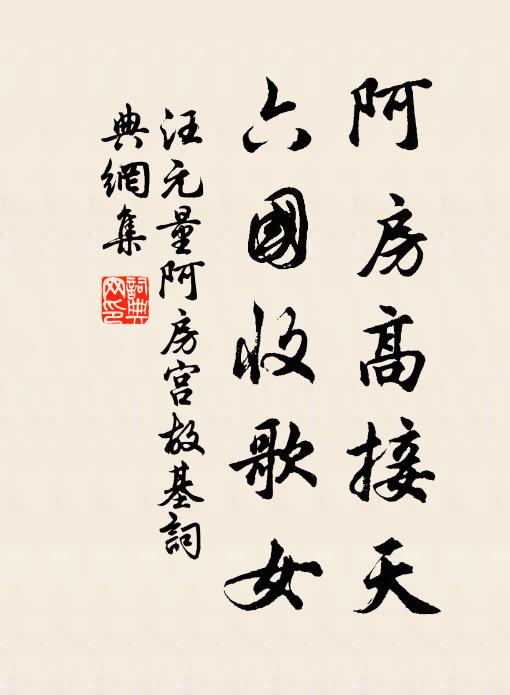 阿房高接天
六國收歌女
汪元量阿房宫故基詞
典網集
詞典
网印